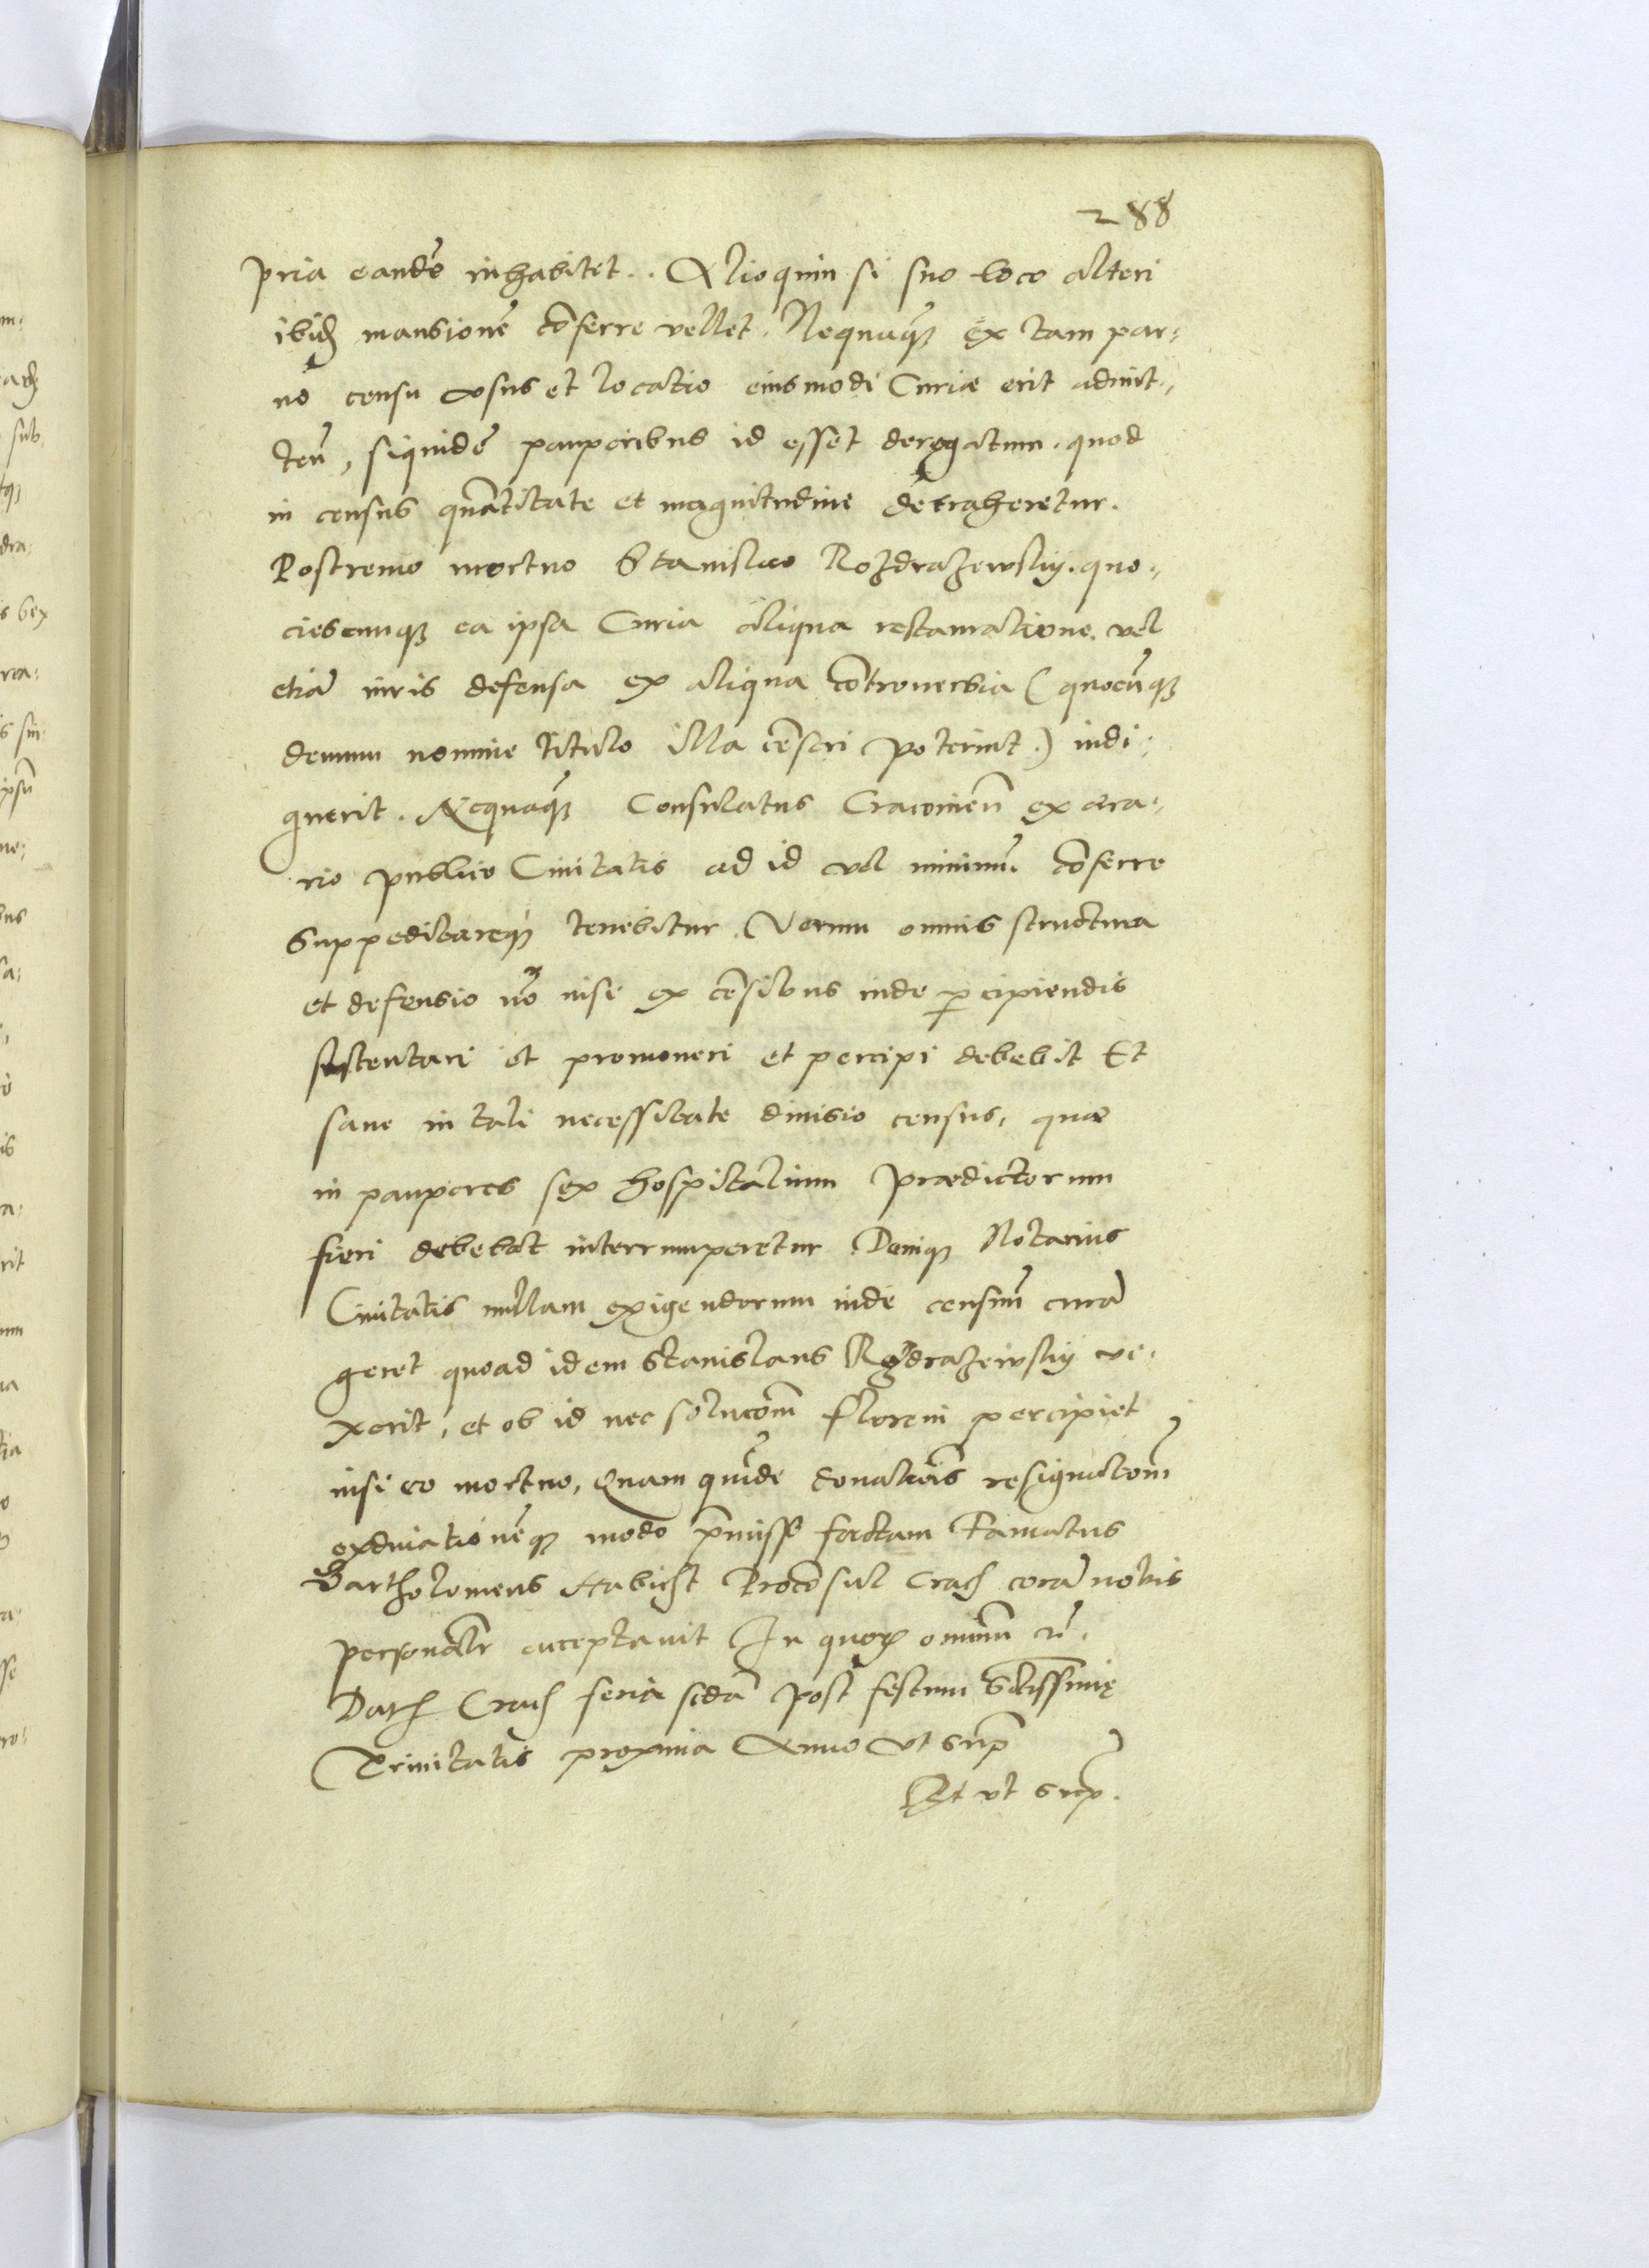 288
pria eandē inhabitet. Alioquin si suo loco alteri
ibidē mansionē cōferre vellet. Nequaq̄ ex tam par-
uo censu vsus et locatio eiusmodi Curiæ erit admit-
ten̄, siquidē pauperibus id esset derogatum. quod
in census quātitate et magnitudine detraheretur.
Postremo mortuo Stanislao Rozdrazewskÿ. quo-
ciescunq; ea ipsa Curia aliqua restauratione. vel
etiā iuris defensa ex aliqua cōtrouersia (quocūq;
demum nomine titulo illa cēseri poterint.) indi-
guerit. Nequaq̄ Consulatus Cracouien̄ ex æra-
rio publico Ciuitatis ad id vel minimū cōferre
suppeditareq; tenebitur. Verum omnis structura
et defensio nō nisi ex cēsibus inde ꝑcipiendis
sustentari et promoueri et percipi debebit Et
sane in tali necessitate diuisio census, quæ
in pauperes sex hospitalium prædictorum
fieri debebat interrumperetur. Deniq; Notarius
Ciuitatis nullam exigendorum inde censuū curā
geret quoad idem Stanislaus Rozdrazewskÿ vi-
xerit, et ob id nec solucōm̄ floreni percipiet
nisi eo mortuo, Quam quidē donatiōis resignatōm̄
exdiuationēq; modo p̄misso factam Famatus
Bartholomeus Habicht Procōsul Crac̄ corā nobis
personalr̄ acceptauit In quorꝫ omniū rē.
Dat̄ Crac̄ feria scd̄a post festum Sctissimę
Trinitatis proxima Anno vt sup̄
Rt vt sup̄.